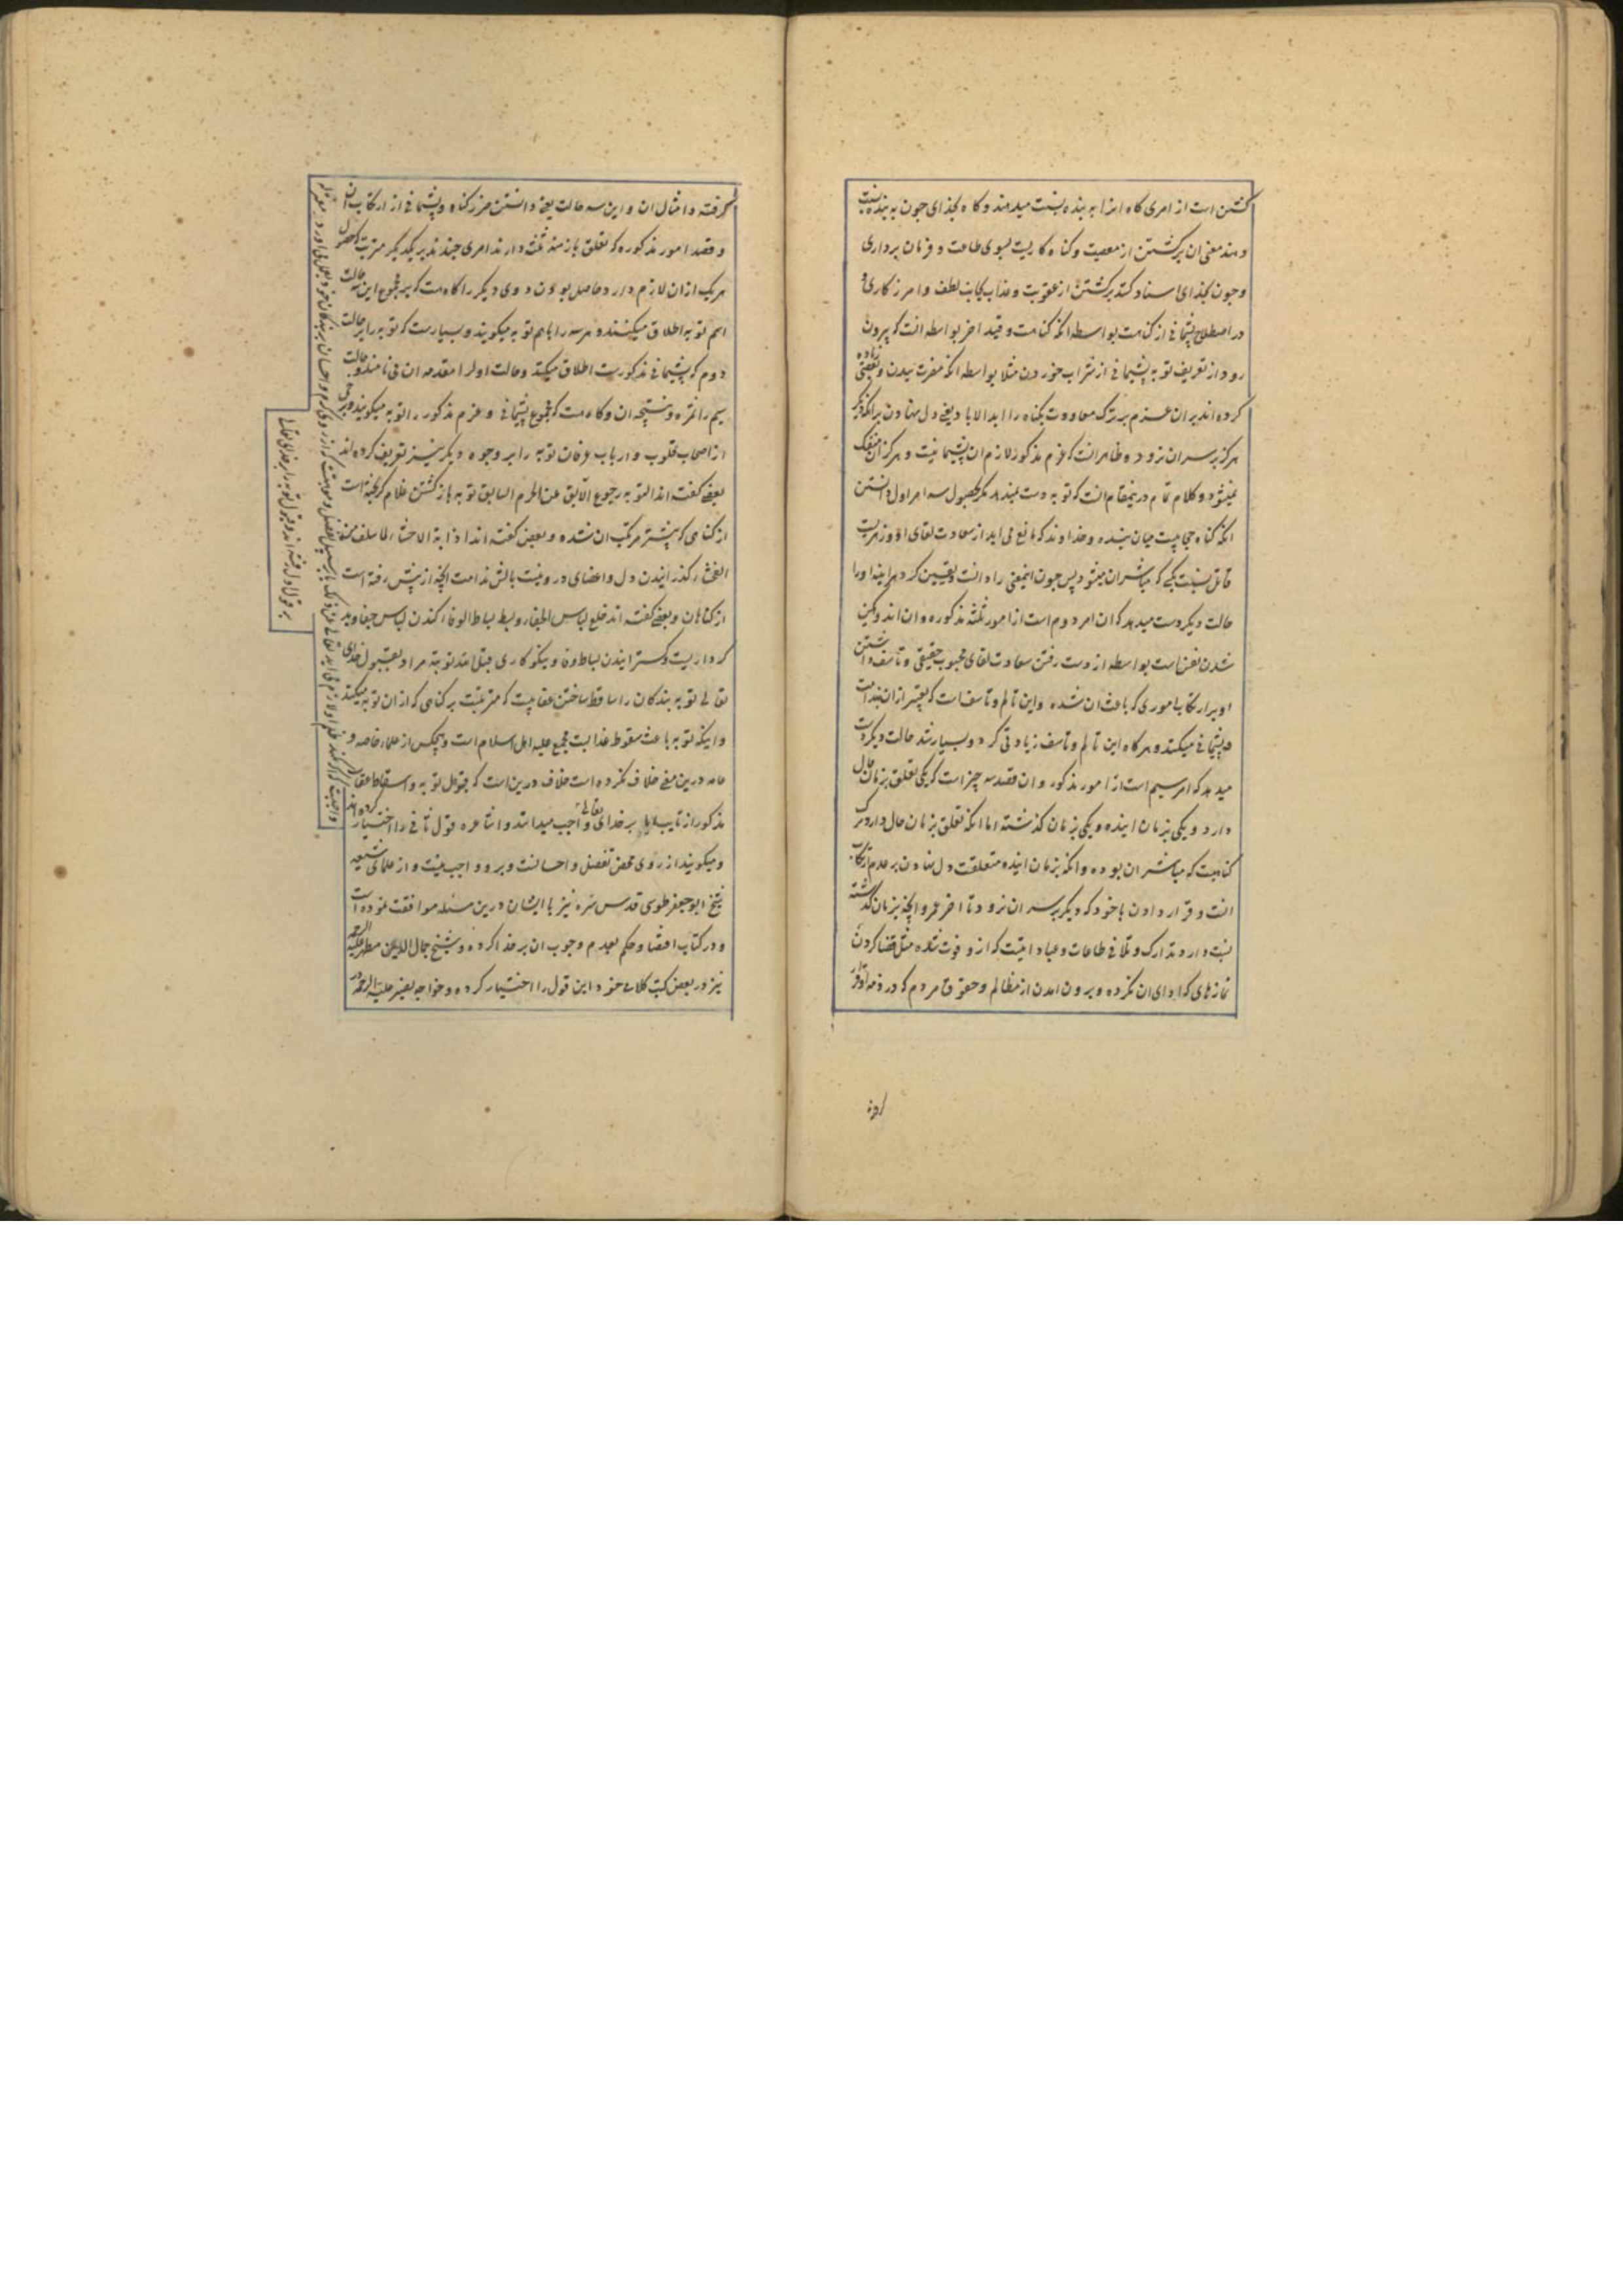 کشتن است از امری کاه انرا به بنده نسبت میدهند و کاه بخدای چون به بنده نسبت
دهند معنی ان برکشتن از معصیت و کناه کاریست بسوی طاعت و فرمان برداری
و چون بخدای اسناد کنند برکشتن از عقوبت و عذاب بجانب لطف و امرزکاری و
در اصطلاح پشیمانی از کناهست بواسطه انکه کناهست و قید اخر بواسطه انست که بیرون
رود از تعریف توبه پشیمانی از شراب خوردن مثلا بواسطه انکه مضرت ببدن و بعضی زیاده
کرده اند بر ان عزم بر ترک معاودت بکناه را ابد الاباد یعنی دل نهادن بر انکه دیکر
هرکز بر سر ان نرود و ظاهر انست که عزم مذکور لازم ان پشیمانیست و هرکز از ان منفک
نمیشود و کلام تمام درینمقام انست که توبه دست نمیدهد مکر بحصول سه امر اول دانستن
انکه کناه حجابیست میان بنده و خداوند که مانع می اید از سعادت لقای او و زهریست
قاتل نسبت بکسی که مباشر ان میشود پس چون اینمعنی را دانست و یقین کرد هراینه او را
حالت دیکر دست میدهد که ان امر دوم است از امور ثلثه مذکوره و ان اندوهکین
شدن نفس است بواسطه از دست رفتن سعادت لقای محبوب حقیقی و تاسف داشتن
او بر ارتکاب اموری که باعث ان شده و این تالم و تاسف است که تعبیر از ان بندامت
و پشیمانی میکنند و هرکاه این تالم و تاسف زیادتی کرد و بسیار شد حالت دیکر دست
میدهد که امر سیم است از امور مذکور و ان قصد سه چیز است که یکی تعلق بزمان حال
دارد و یکی بزمان اینده و یکی بزمان کذشته اما انکه تعلق بزمان حال دارد ترک
کناهیست که مباشر ان بوده و انکه بزمان اینده متعلقست دل نهادن بر عدم ارتکاب
انست و قرار دادن با خود که دیکر بر سر ان نرود تا اخر عمر و انچه بزمان کذشته
نسبت دارد تدارک و تلافی طاعات و عباداتیست که از و فوت شده مثل قضا کردن
نمازهای که ادای ان نکرده و بیرون امدن از مظالم و حقوق مردم که در ذمه او قرار
کرفته و امثال ان و این سه حالت یعنی دانستن ضرر کناه و پشیمانی از ارتکاب ان
و قصد امور مذکوره که تعلق بازمنه ثلث دارند امری چندند بر یکدیکر مترتب که حصول
هریک از ان لازم دارد حاصل بودن دوی دیکر را کاه هست که بر مجموع این سه حالت
اسم توبه اطلاق میکنند و هر سه را باهم توبه میکویند و بسیارست که توبه را بر حالت
دوم که پشیمانی مذکورست اطلاق میکنند و حالت اول را مقدمه ان می نامند و حالت
سیم را ثمره و نتیجه ان و کاه هست که مجموع پشیمانی و عزم مذکور را توبه میکویند و برخی
از اصحاب قلوب و ارباب عرفان توبه را بر وجوه دیکر نیز تعریف کرده اند
بعضی کفته اند التوبه رجوع الابق عن الجرم السابق توبه بازکشتن غلام کریخته است
از کناهی که پیشتر مرتکب ان شده و بعضی کفته اند اذابة الاحشاء لما سلف من
الفحشاء کذرانیدن دل و اعضای درونیست بالش ندامت انچه از پیش رفته است
از کناهان و بعضی کفته اند خلع لباس الجفاء و بسط بساط الوفاء کندن لباس جفا و بد
کرداریست و کسترانیدن بساط وفا و نیکوکاری قبل الله توبته مراد بقبول خدای
تعالی توبه بندکان را ساقط ساختن عقابیست که مترتبست بر کناهی که از ان توبه میکنند
و اینکه توبه باعث سقوط عذابست مجمع علیه اهل اسلام است و هیچکس از علماء خاصه و
عامه درین معنی خلاف نکرده است خلاف درین است که قبول توبه و اسقاط عقاب
مذکور از تایب ایا بر خدای تعالی واجب میدانند و اشاعره قول ثانی را اختیار کرده اند
و میکویند از روی محض تفضل و احسانست و برو واجب نیست و از علمای شیعه
شیخ ابو جعفر طوسی قدس سره نیز با ایشان درین مسئله موافقت نموده است
و در کتاب اقتصاد حکم بعدم وجوب ان بر خدا کرده و شیخ جمال الدین مطهر علیه الرحمه
نیز در بعضی کتب کلامی خود این قول را اختیار کرده و خواجه نصیر علیه الرحمه در
واجبست که اکر نکند ظلم او لازم می اید تعالی عن ذلک یا بر سبیل تفضل و موهبتست که از روی کرم و احسان ببندکان خود بعمل می اورد معتزله
بر قول اول رفته اند و قبول توبه را بر خدای تعالی